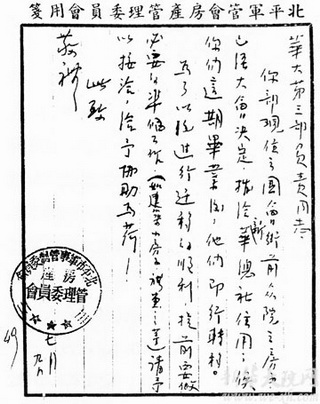 北平軍管會房產管理委員會用箋
華大第三部負責同志
你部現住之國會街前眾院之房子
已經大會決定,撥給新華總社使用;俟
你們這期畢業後,他們即行轉移。
為了以後進行遷移的順利提前要做
必要的準備工作(如建築上房子之等)請予
以接洽,給予協助為荷!
此致
敬禮
北平市軍事管制委員會
房產
管理委員會
49 七月